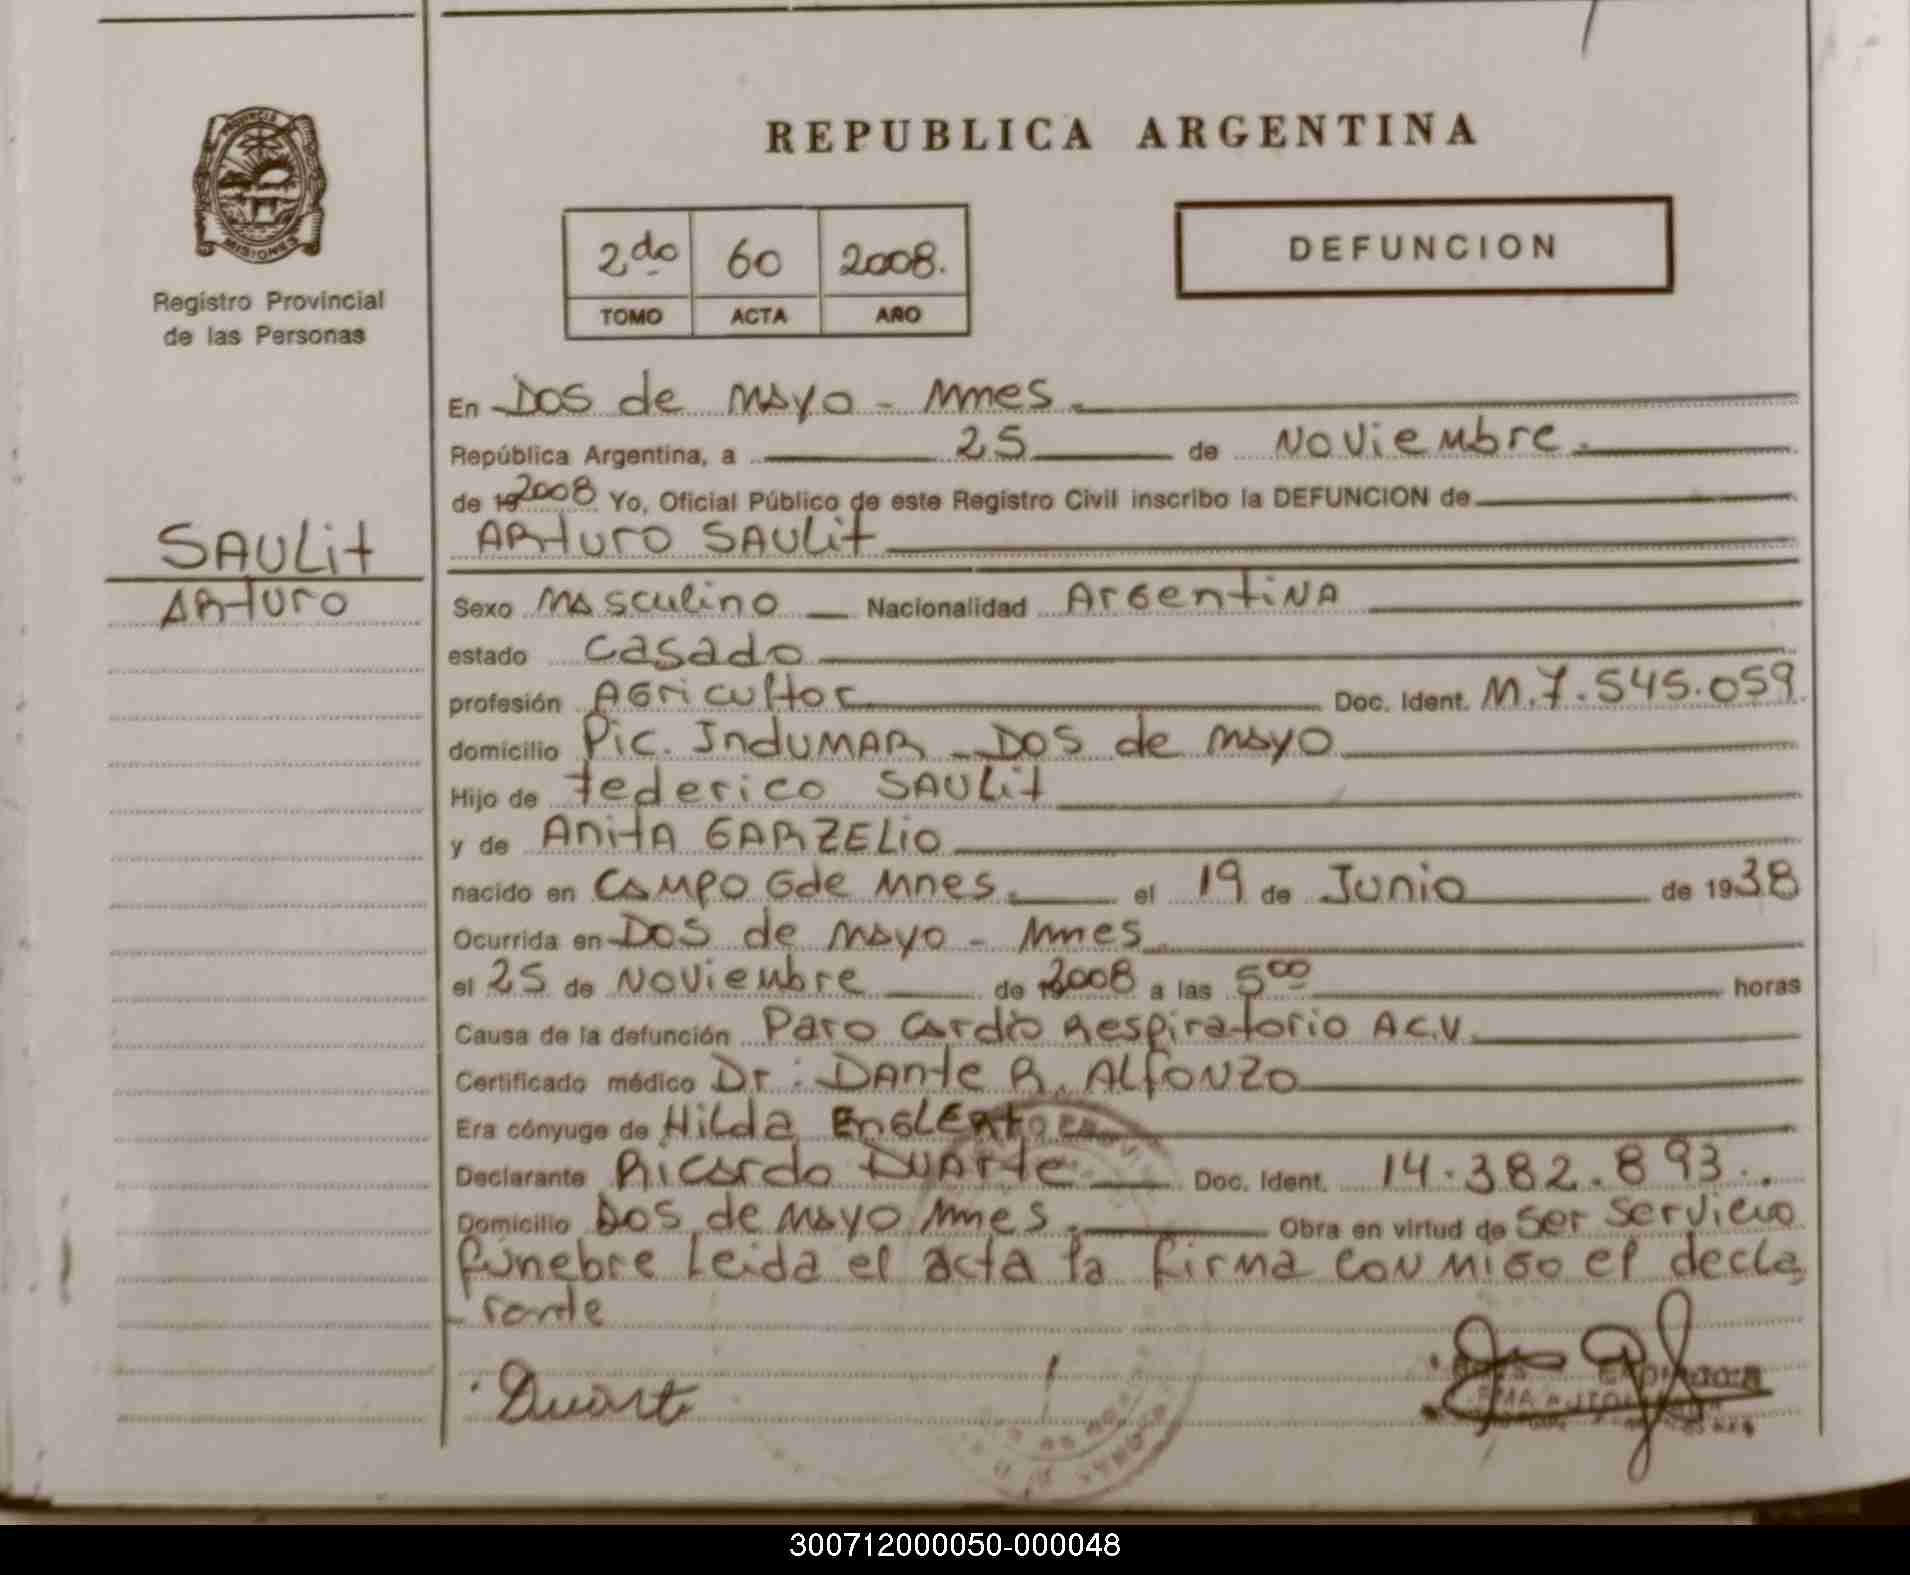 REPUBLICA ARGENTINA
PROVINCIA
MISIONES
Registro Provincial
de las Personas
2do 60 2008.
TOMO ACTA AÑO
DEFUNCION
SAULit
ARturo
En Dos de Mayo - Mnes.
República Argentina, a 25 de Noviembre.
de 19 2008 Yo, Oficial Público de este Registro Civil inscribo la DEFUNCION de
ARturo SAULit
Sexo Masculino Nacionalidad ArgentiNA
estado casado
profesión AGricultor Doc. Ident. M.7.545.059.
domicilio Pic. INduMAR - Dos de Mayo
Hijo de federico SAULit
y de ANitA GARZELio
nacido en CAMpo Gde Mnes. el 19 de Junio de 1938
Ocurrida en Dos de Mayo - Mnes
el 25 de Noviembre de 2008 a las 5 00 horas
Causa de la defunción Paro Cardio Respiratorio A.C.V.
Certificado médico Dr: DANte R. ALfONZO
Era cónyuge de HiLda
Declarante Ricardo DUARte Doc. Ident. 14.382.893..
Domicilio Dos de Mayo Mnes. Obra en virtud de ser servicio
fúnebre Leida el acta la firma conmigo el decla
rante
Duarte
300712000050-000048